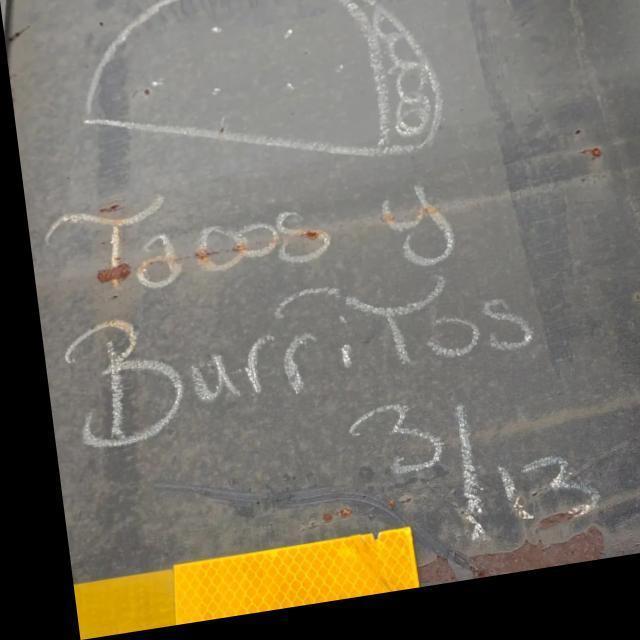 Tacos y
BurriTos
3/13